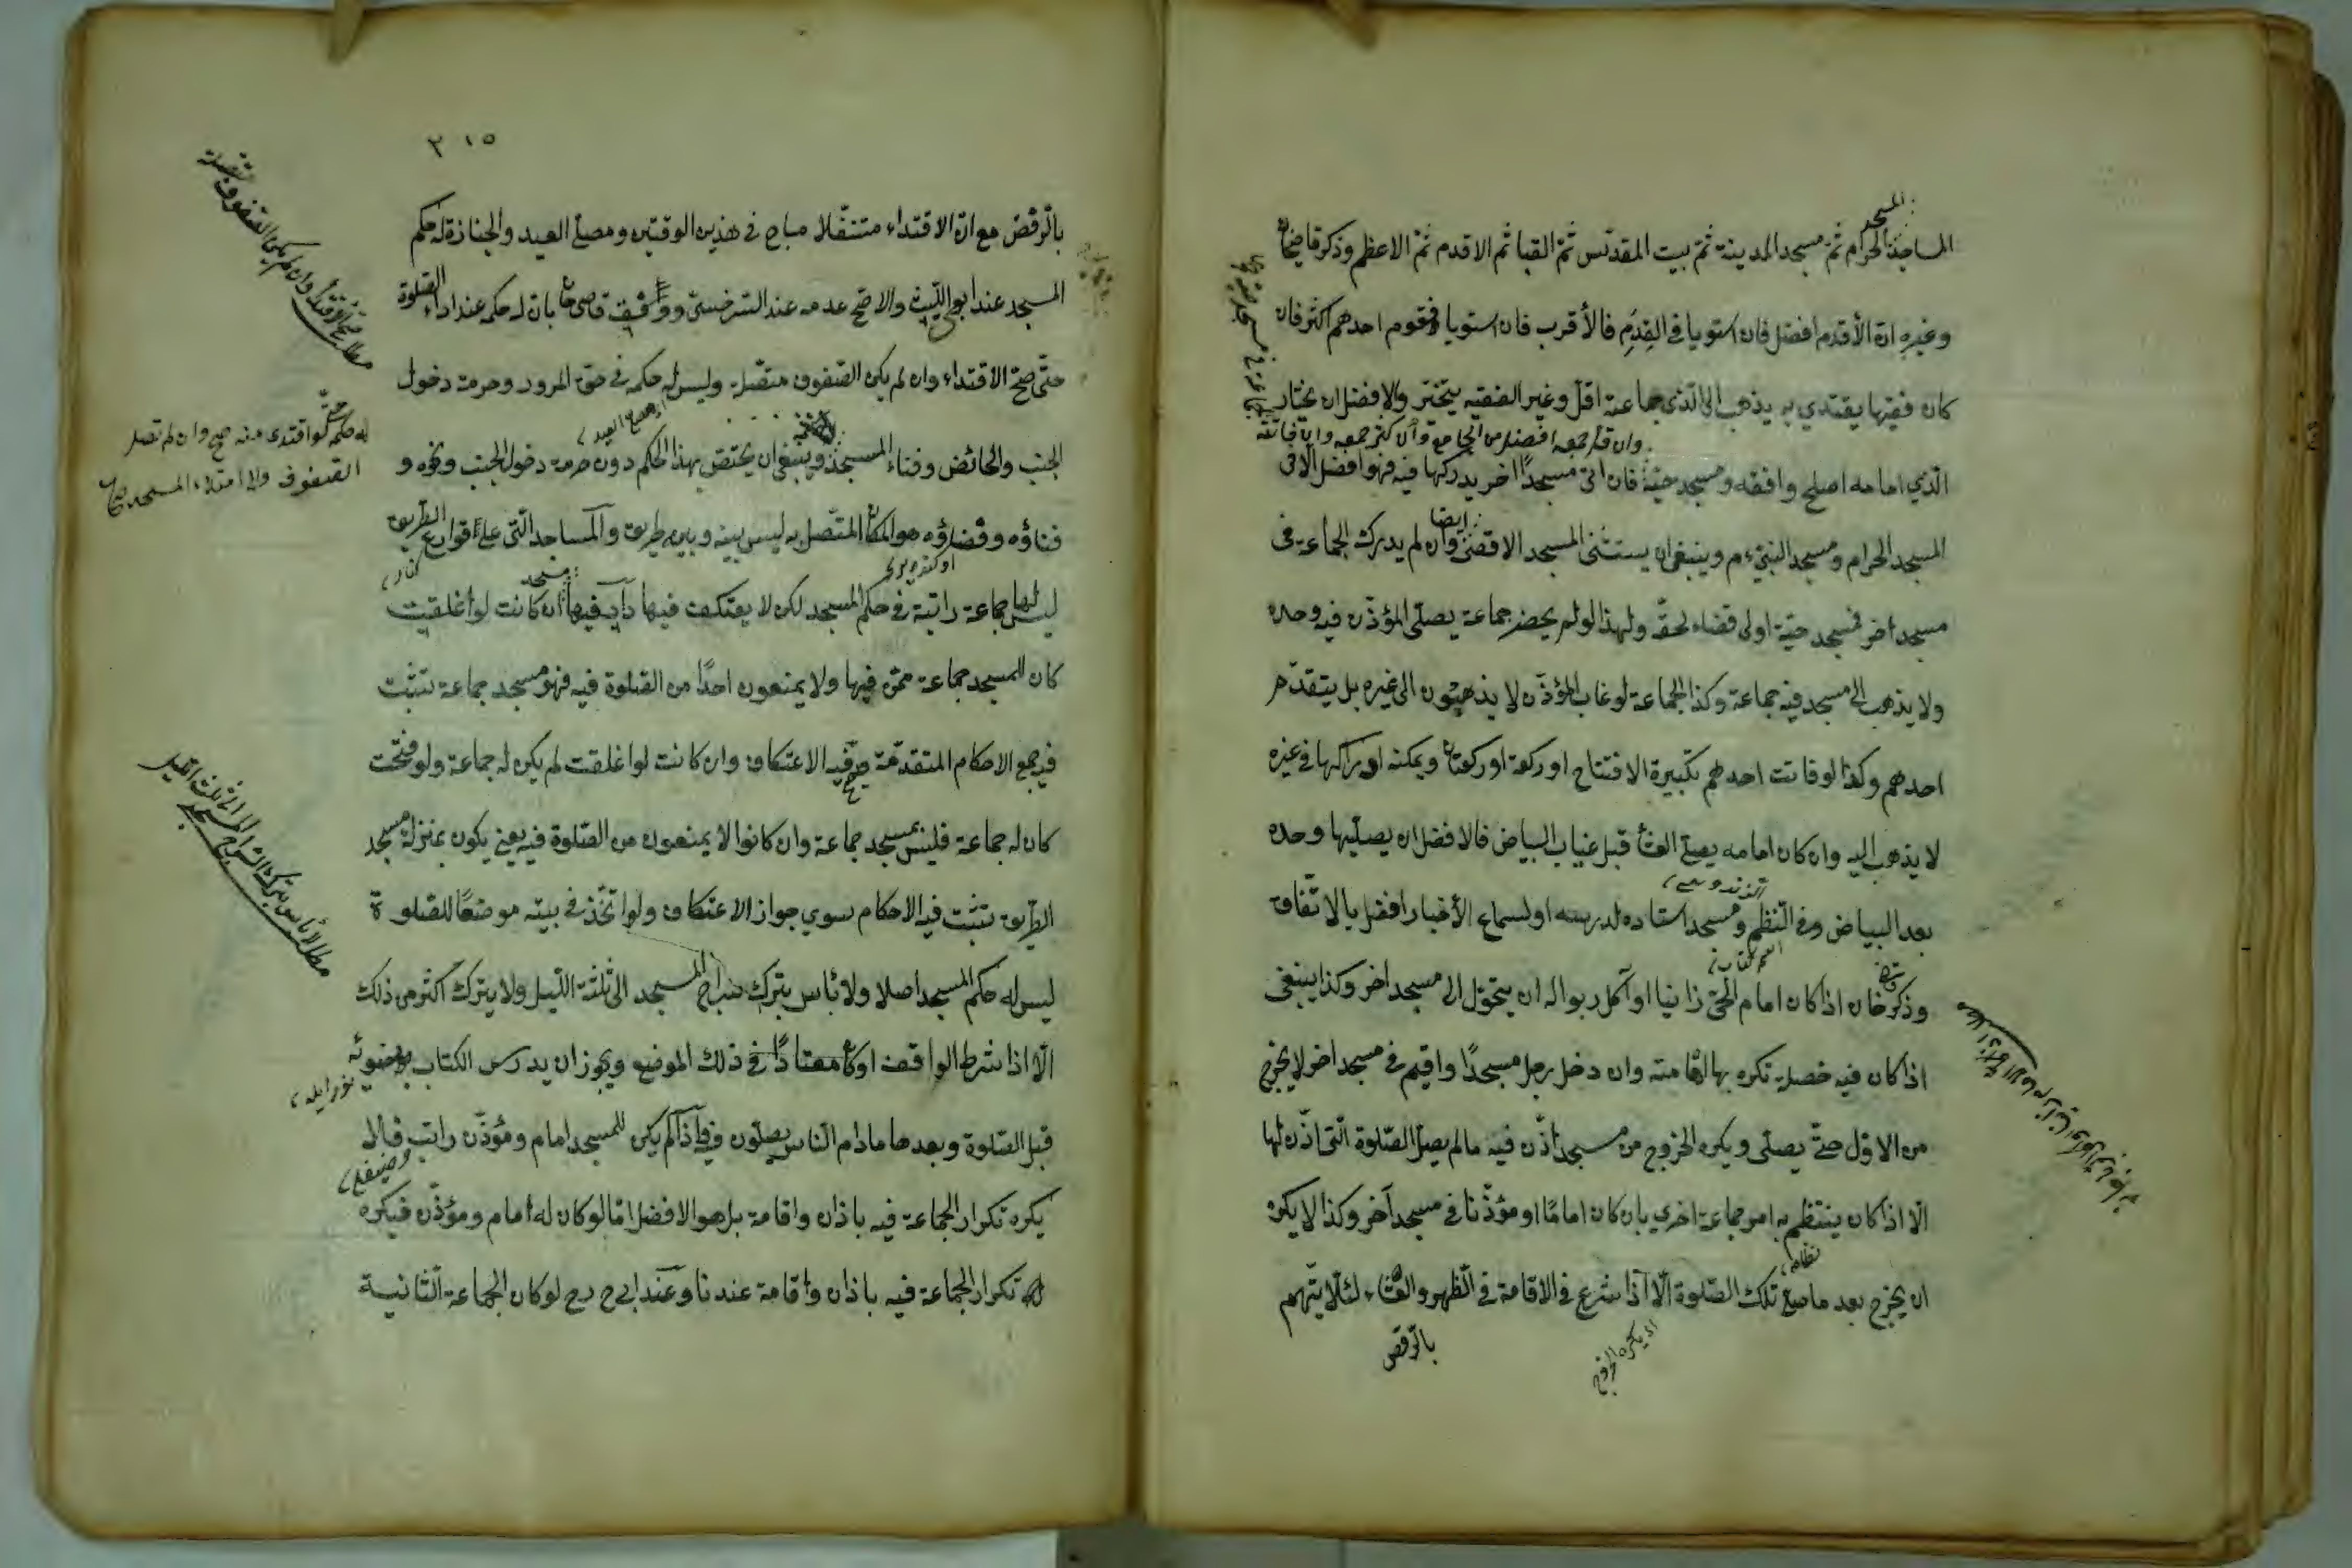 المسجد
المساجد الحرام ثم مسجد المدينة ثم بيت المقدس ثم القبا ثم الاقدم ثم الاعظم وذكر قاضيخان
وغيره ان الأقدم افضل فان استويا في القدم فالأقرب فان استويا فقوم احدهم اكثر فان
كان فقيها يقتدي به يذهب الى الذي جماعته اقل وغير الفقيه يتخير والافضل ان يختار
وان قل جمعه افضل من الجامع وان كثر جمعه
الذي امامه اصلح وافقه ومسجد حيه فان اتى مسجدًا اخر يدركها فيه فهو افضل الا في
المسجد الحرام ومسجد النبي ءم وينبغي ان يستثنى المسجد الاقصى وان لم يدرك الجماعة في
ايضا
مسجد اخر فمسجد حيه اولى قضاء لحقه ولهذا لو لم يحضر جماعة يصلى المؤذن فيه وحده
ولا يذهب الى مسجد فيه جماعة وكذا الجماعة لو غاب المؤذن لا يذهبون الى غيره بل يتقدم
احدهم وكذا لو فاتت احدهم تكبيرة الافتتاح او ركعة او ركعتان ويمكنه ادراكها في غيره
لا يذهب اليه وان كان امامه يصلي العشا قبل غياب البياض فالافضل ان يصليها وحده
بعد البياض وفي النظم ومسجد استاده لدرسه او لسماع الأخبار افضل بالاتفاق
وذكر قاضيخان اذا كان امام الحي زانيا او آكل ربوا له ان يتحول الى مسجد اخر وكذا ينبغي
اذا كان فيه خصلة تكره بها امامته وان دخل رجل مسجدًا واقيم في مسجد اخر لا يخرج
من الاول حتى يصلى ويكره الخروج من مسجد أذن فيه ما لم يصل الصلوة التى اذن لها
الا اذا كان ينتظم به امر جماعة اخري بان كان امامًا او مؤذنا في مسجد آخر وكذا لا يكره
ان يخرج بعد ما صلى تلك الصلوة الا اذا شرع في الاقامة في الظهر والعشاء لئلا يتهم
اي يكره الخروج
بالرفض
٣١٥
بالرفض مع ان الاقتداء متنفلا مباح في هذين الوقتين ومصلى العيد والجنازة له حكم
المسجد عند ابي الليث والاصح عدمه عند السرخسي ووفق قاضي خان بان له حكمه عند اداء الصلوة
حتى صح الاقتداء وان لم يكن الصفوف متصلة وليس له حكمه في حق المرور وحرمة دخول
الجنب والحائض وفناء المسجد وينبغي ان يختص بهذا الحكم دون حرمة دخول الجنب ونحوه و
فناؤه هو المكان المتصل به ليس بينه وبينه طريق والمساجد التى على قوارع الطريق
ليس لها جماعة راتبة في حكم المسجد لكن لا يعتكف فيها ان كانت لو اغلقت
كان للمسجد جماعة ممن فيها ولا يمنعون احدًا من الصلوة فيه فهو مسجد جماعة تثبت
فيه جميع الاحكام المتقدمة الاعتكاف وان كانت لو اغلقت لم يكن له جماعة ولو فتحت
كان له جماعة فليس بمسجد جماعة وان كانوا لا يمنعون من الصلوة فيه يعني يكون بمنزلة مسجد
الطريق تثبت فيه الاحكام سوي جواز الاعتكاف ولو اتخذ في بيته موضعًا للصلوة
ليس له حكم المسجد اصلا ولا بأس بترك سراج المسجد الى ثلث الليل ولا يترك اكثر من ذلك
الا اذا شرط الواقف او كان معتادًا في ذلك الموضع ويجوز ان يدرس الكتاب بضوئه
قبل الصلوة وبعدها ما دام الناس يصلون فيه واذا لم يكن للمسجد امام ومؤذن راتب فلا
يكره تكرار الجماعة فيه باذان واقامة بل هو الافضل اما لو كان له امام ومؤذن فيكره
تكرار الجماعة فيه باذان واقامة عندنا وعند ابي ح رح لو كان الجماعة الثانية
له حكمه حتى لو اقتدى منه صح وان لم تصل
الصفوف